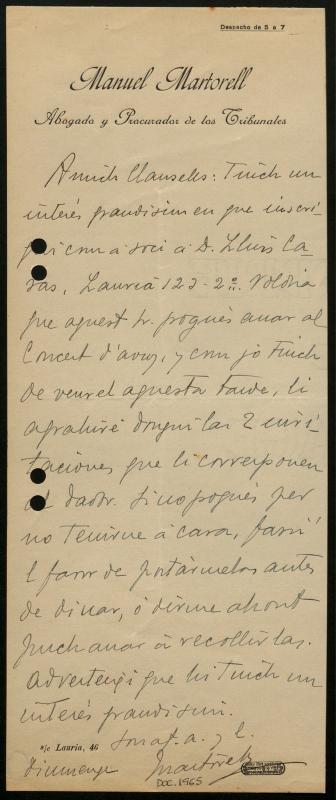 Despacho de 5 a 7
Manuel Martorell
Abogado y Procurador de los Tribunales
Amich Clausells: Tinch un
interés grandisim en que inscri-
guin com á soci á D. Lluis Ca-
sas, Lauria 123-2º. Voldria
que aquest Sr. pogués anar al
Concert d'avuy, y com jo tinch
de veurel aquesta tarde, li
agrahiré donguí las 2 invi-
taciones que li correrponen
al dador. Si no pogués per
no tenirne á casa, fassi
l favor de portármelas antes
de dinar, ó dirme ahont
puch anar á recollirlas.
Advertexi que hi tinch un
interés grandisim.
s/c Lauria, 46
son af. a. y c.
diumenge
Martorell
DOC. 1965